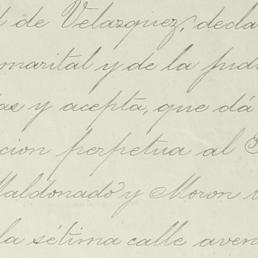 de Velazquez, decla
marital y de la pudi
as y acepta, que dá
cion perpetua al S
Maldonado y Moron
la sétima calle aven